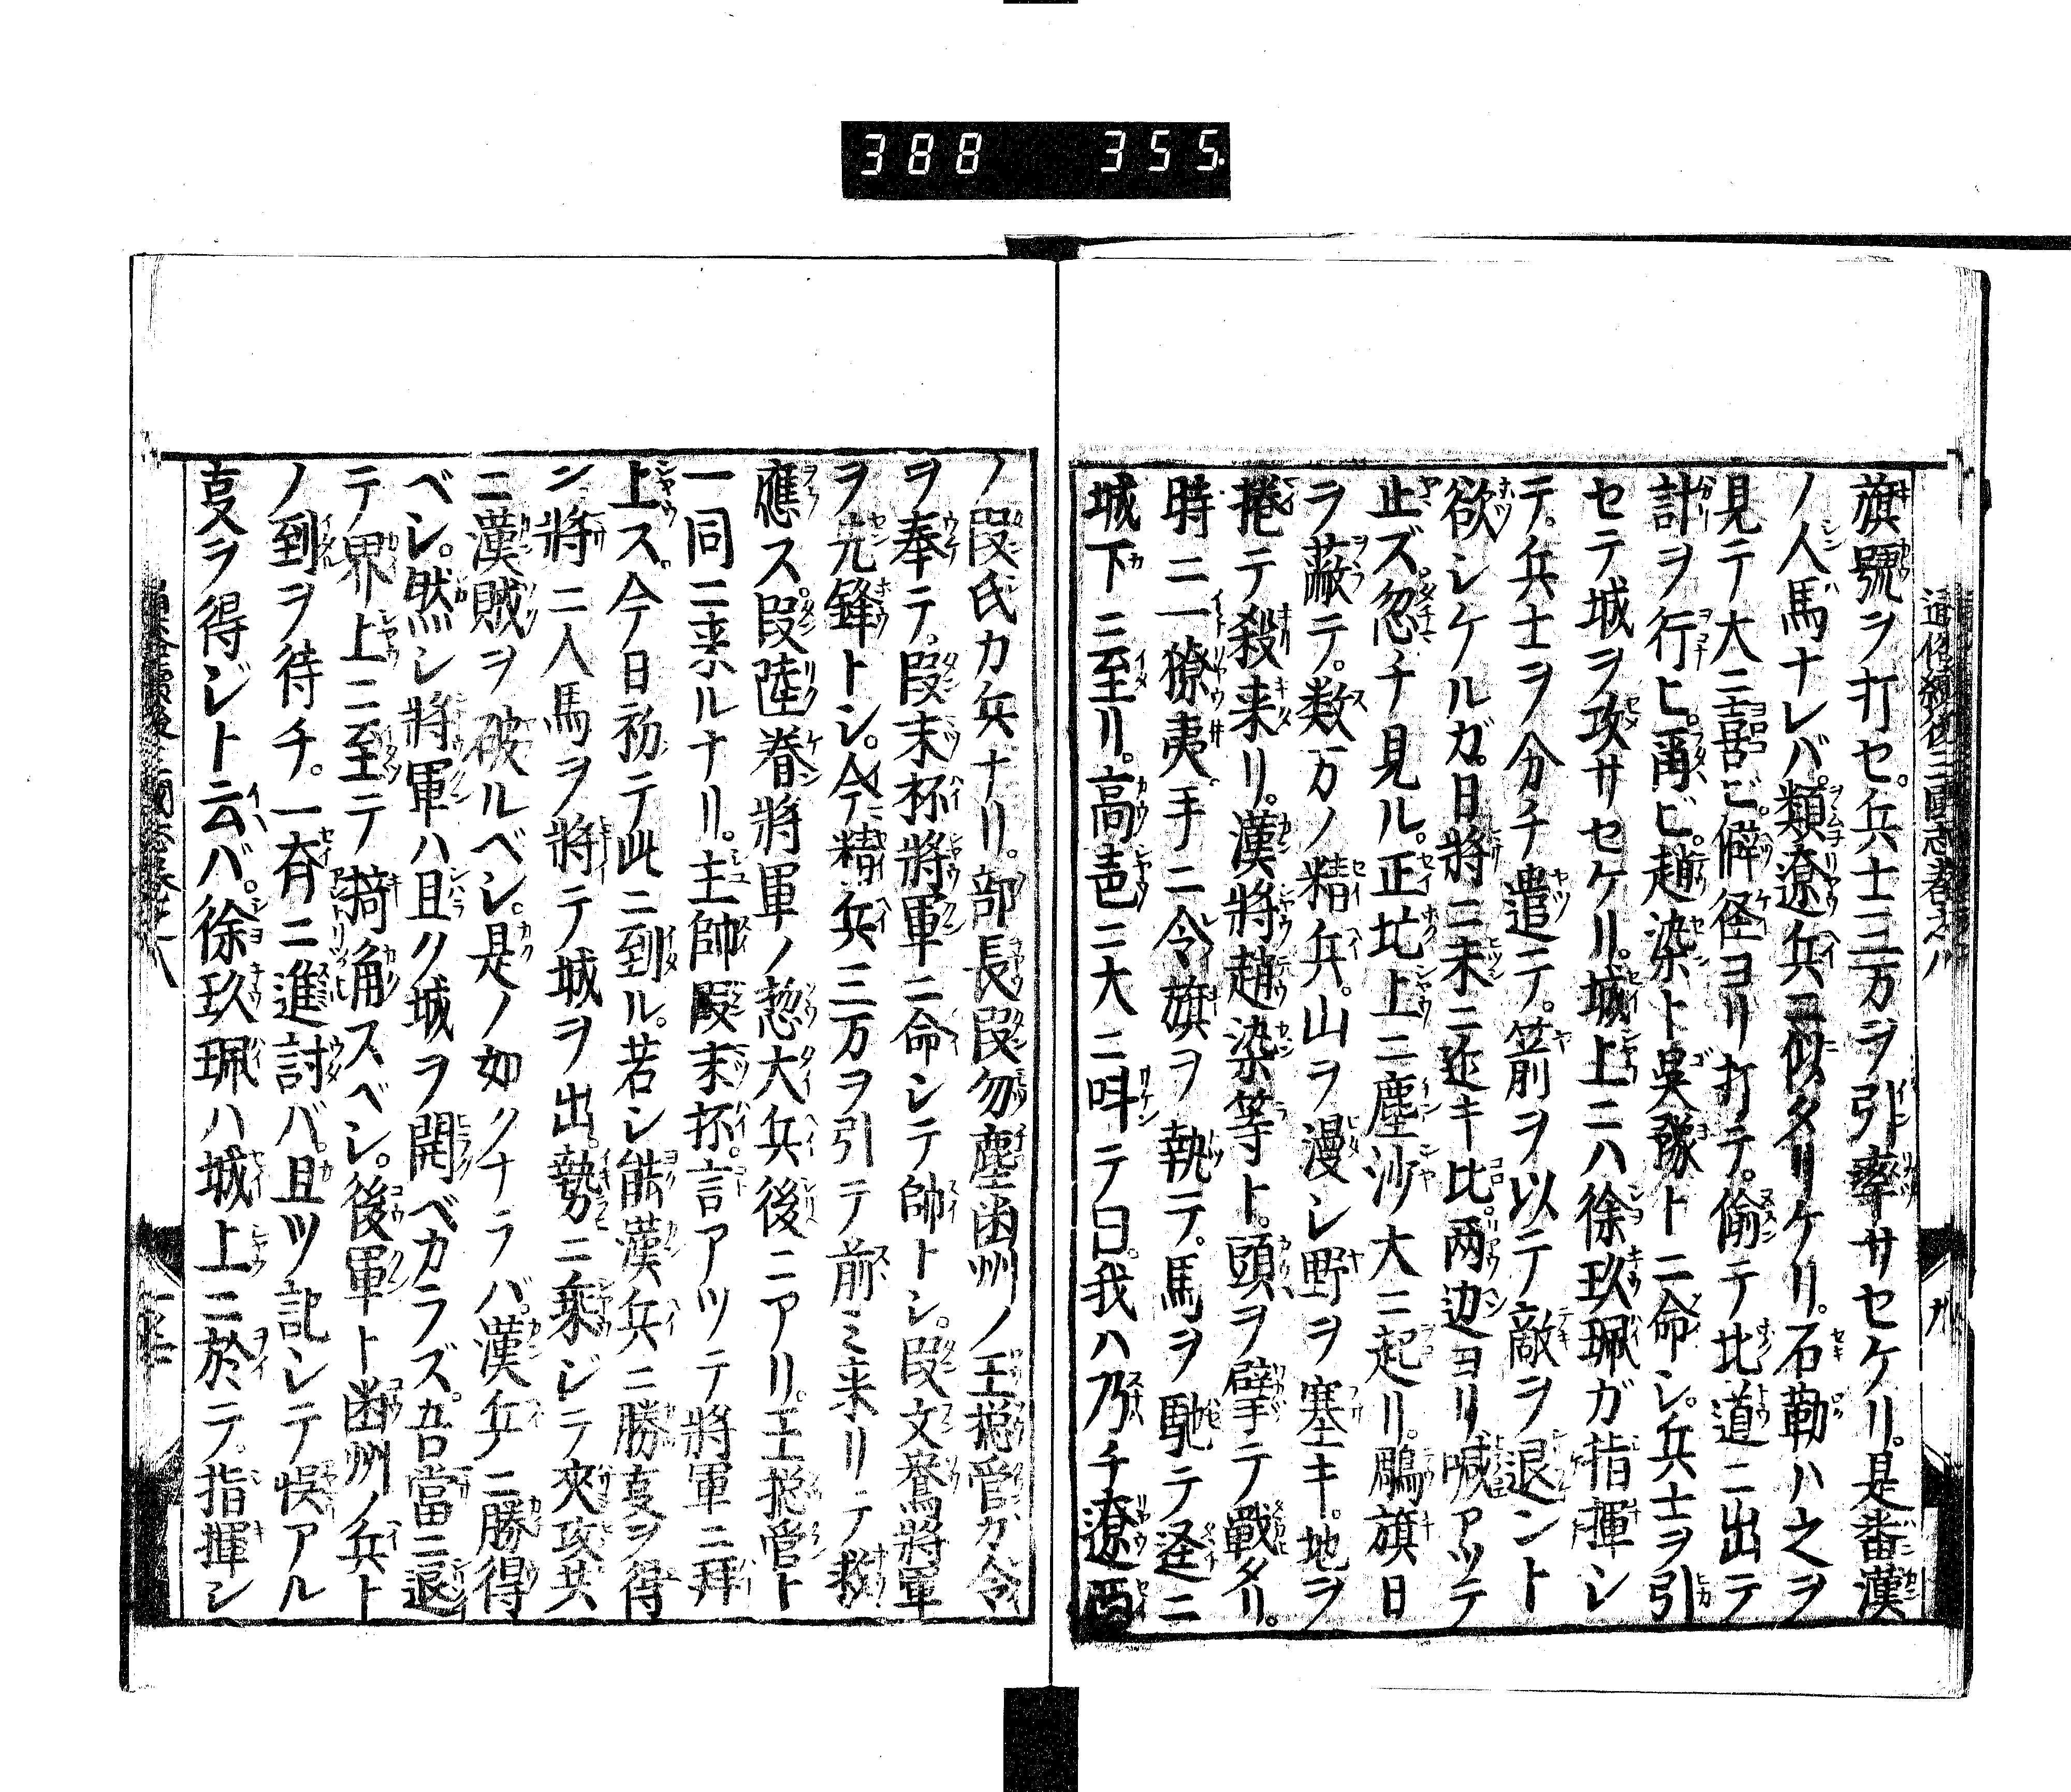 388 355
通俗續後三國志卷之八
旗號ヲ打セ。兵士三万ヲ引率サセケリ。是番漢
ノ人馬ナレバ。類遼兵ニ似タリケリ。石勒ハ之ヲ
見テ大ニ喜ビ。僻径ヨリ打テ。偷テ北道ニ出テ
計ヲ行ヒ。再ビ。趙染ト呉豫トニ命シ。兵士ヲ引
セテ城ヲ攻サセケリ。城上ニハ徐玖珮ガ指揮シ
テ。兵士ヲ分カチ遣テ。箭ヲ以テ敵ヲ退ント
欲シケルガ。日將ニ未ニ近キ比。両辺ヨリ喊アツテ
止ズ。忽チ見ル。正北上ニ塵沙大ニ起リ。鵰旗日
ヲ蔽テ。数万ノ精兵。山ヲ漫シ野ヲ塞キ。地ヲ
捲テ殺来リ。漢將趙染等ト。頭ヲ擘テ戰タリ。
時ニ一獠夷。手ニ令旗ヲ執テ。馬ヲ馳テ逕ニ
城下ニ至リ。高声ニ大ニ呌テ曰。我ハ乃チ遼西
ノ段氏カ兵ナリ。部長段勿塵幽州ノ王揔管カ令
ヲ奉テ。段末杯將軍ニ命シテ帥トシ。段文鴦將軍
ヲ先鋒トシ。今精兵三万ヲ引テ前ミ来リテ救
應ス。段陸眷將軍ノ惣大兵後ニアリ。王揔管ト
一同ニ来ルナリ。主帥段末杯。言アツテ將軍ニ拜
上ス。今日初テ此ニ到ル。若シ能漢兵ニ勝亊ヲ得
ン將ニ人馬ヲ將テ城ヲ出。勢ニ乗ジテ夾攻共
ニ漢賊ヲ破ルベシ。是ノ如クナラバ。漢兵ニ勝得
ベシ。然シ將軍ハ且ク城ヲ開ベカラズ。吾當ニ退
テ界上ニ至テ掎角スベシ。後軍ト幽州ノ兵ト
ノ到ヲ待チ。一斉ニ進討バ。且ツ記シテ悞アル
亊ヲ得ジト云バ。徐玖珮ハ城上ニ於テ。指揮シ